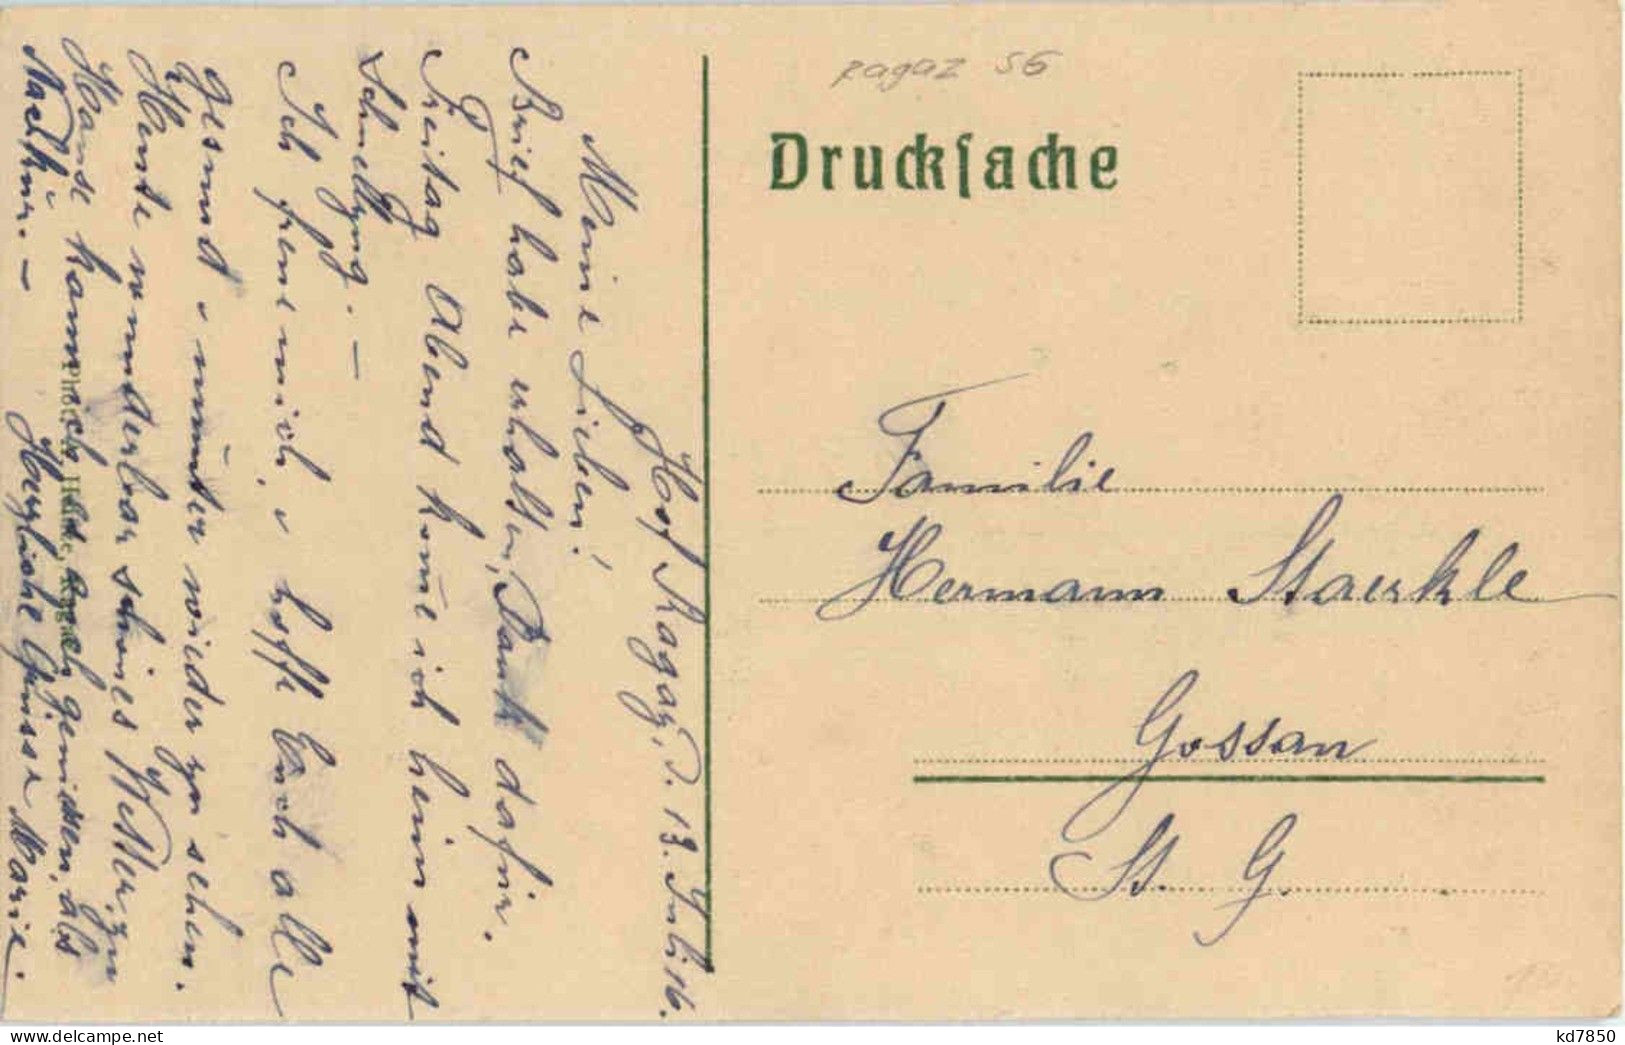 Ragaz SG
Drucksache
Familie
Hermann Staerkle
Gossau
St. G.
Hof Ragaz, d. 13. Juli 16.
Meine Lieben!
Brief habe erhalten, Dank dafür.
Freitag Abend kome ich heim mit
Schnellzug. —
Ich freue mich, u hoffe Euch alle
gesund u munter wieder zu sehen.
Heute wunderbar schönes Wetter, zu
Hause kann ich es noch geniessen, als
Nachkur. —
Herzliche Grüsse Marie.
kd7850